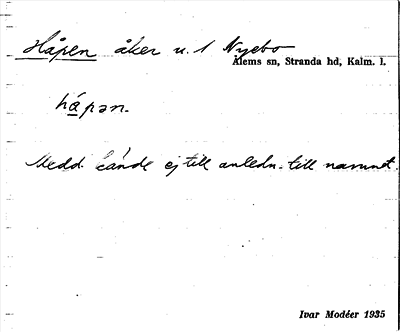 Håpen åker u. 1 Nyebo
Ålems sn, Stranda hd, Kalm. l.
hǻpən.
Medd. kände ej till anledn. till namnet.
Ivar Modéer 1935